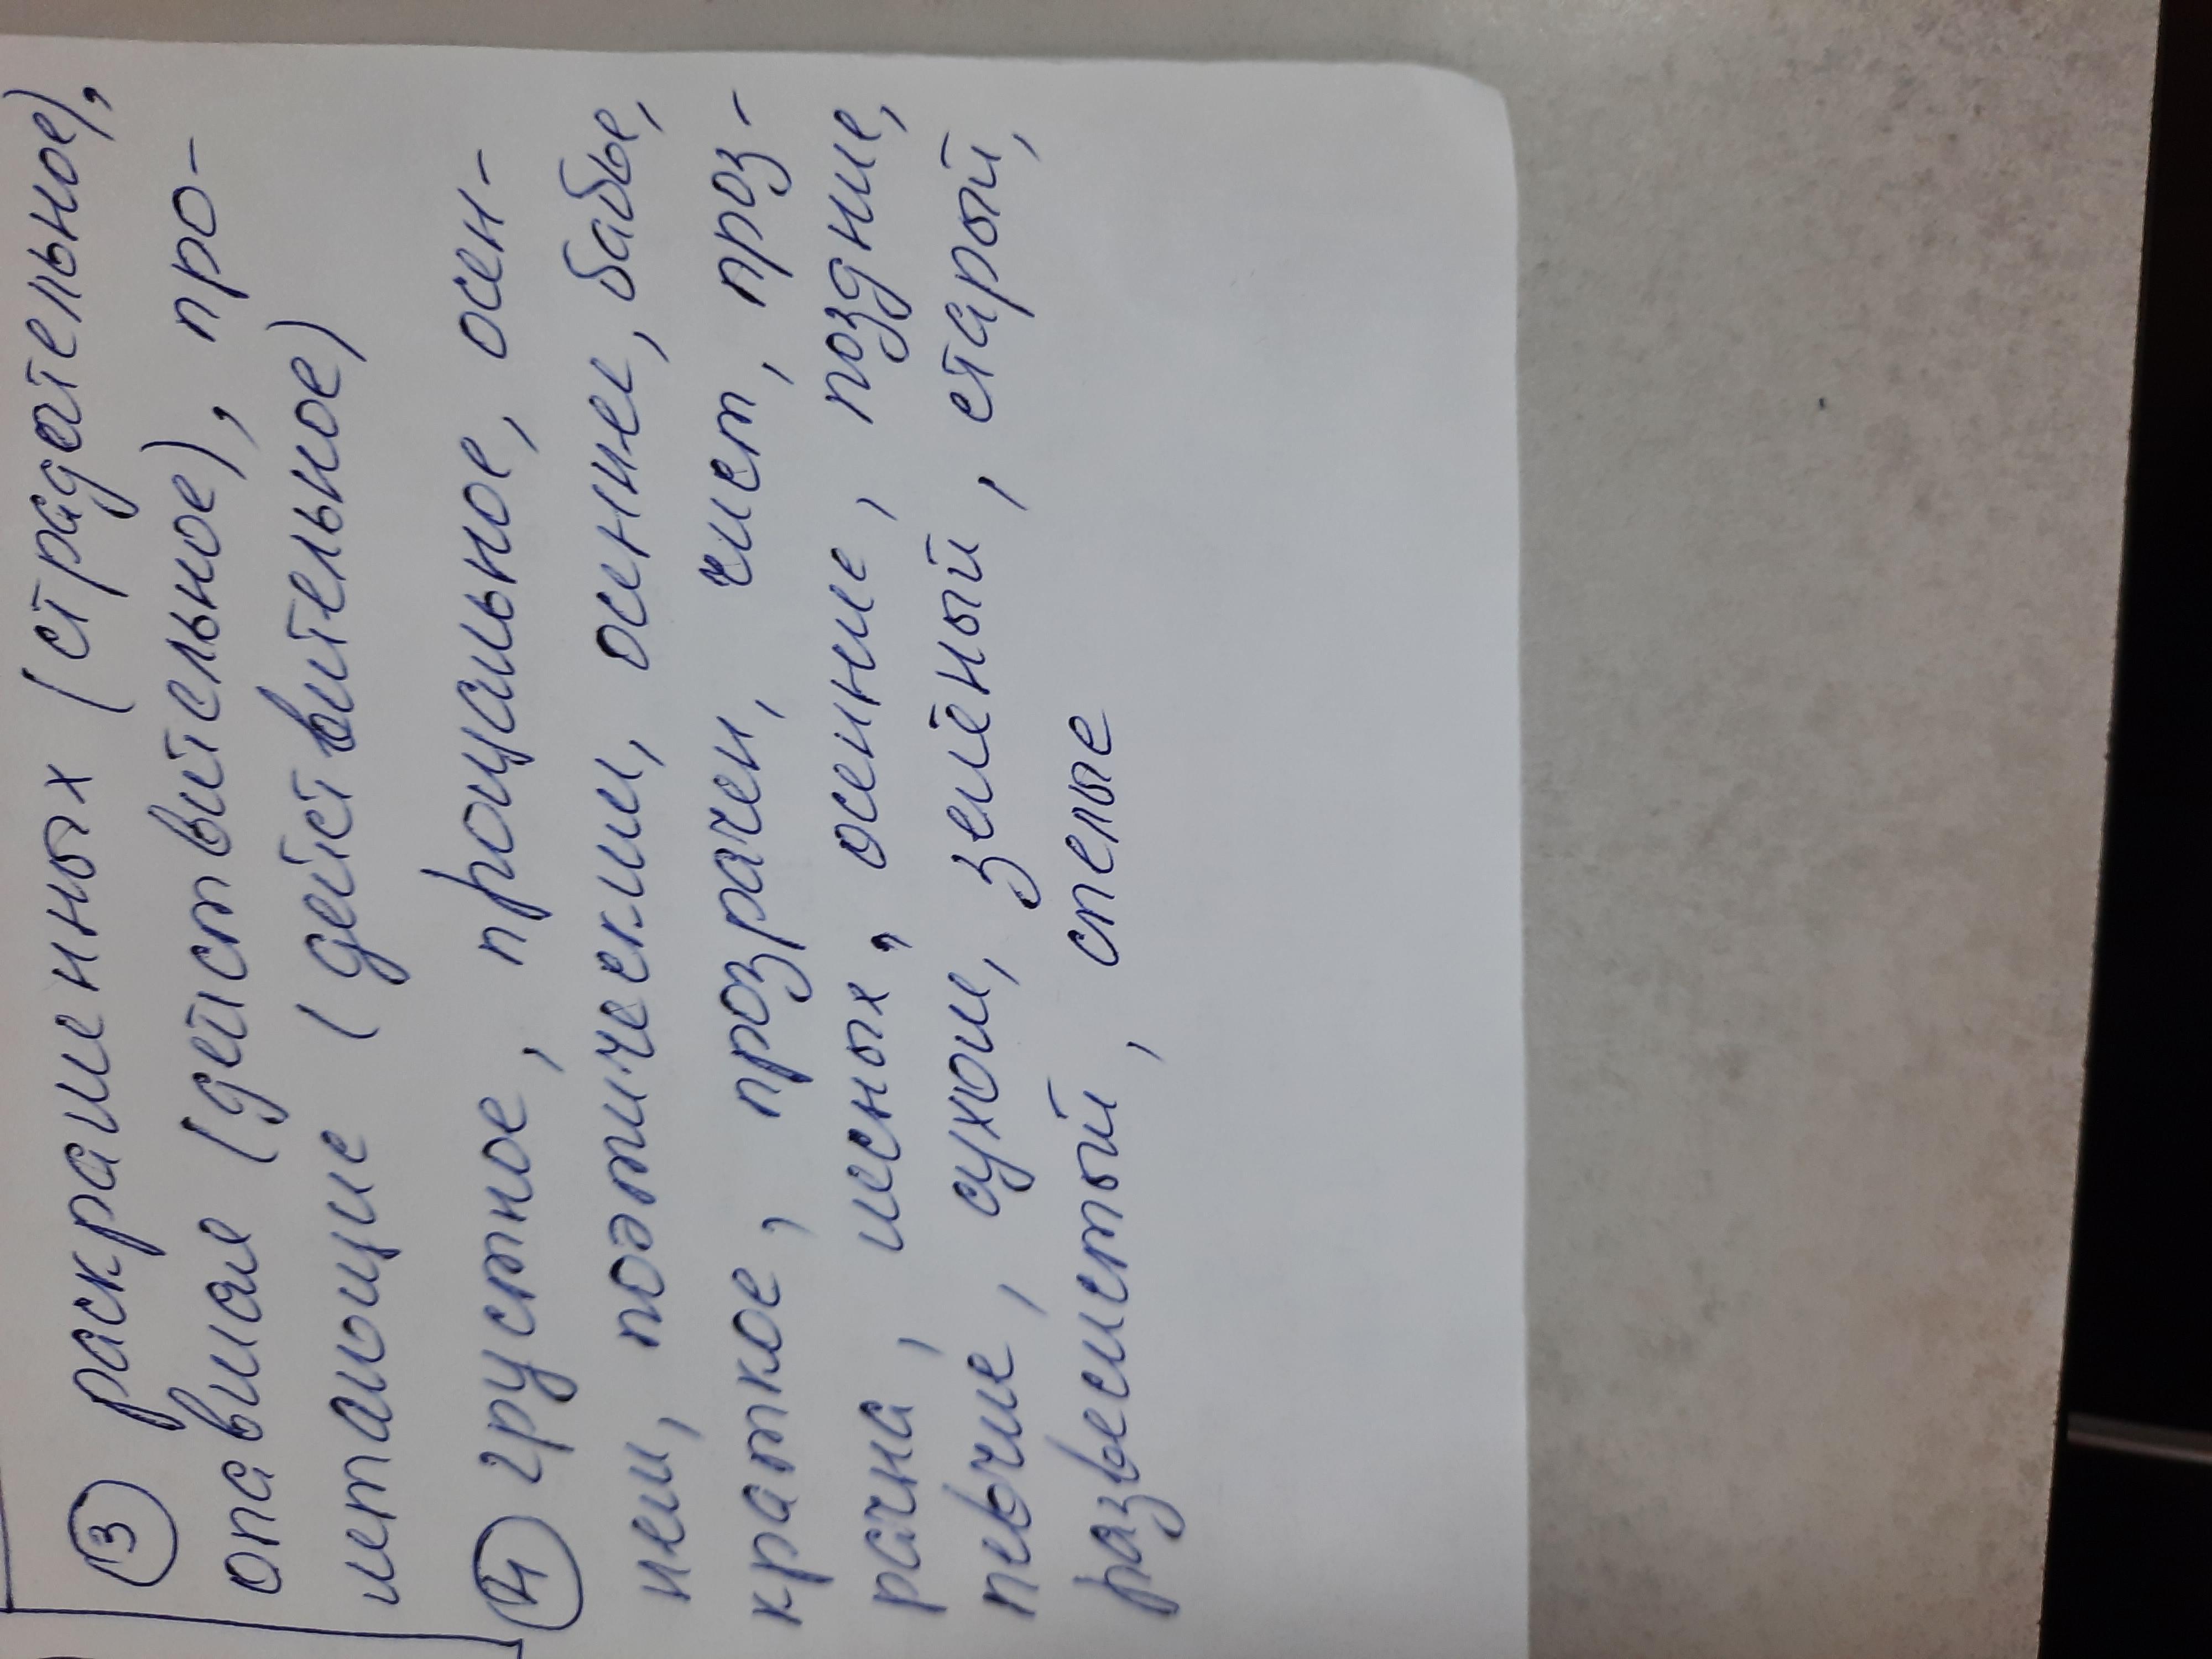 ③ раскрашенных (страдательное),
опавшая (действительное), про-
летающие (действительное)
④ грустное, прощальное, осен-
нем, поэтическим, осеннее, бабье,
краткое, прозрачен, чист, проз-
рачна, лесных, осенние, поздние,
певчие, сухом, зелёный, старый,
развесистый, спелые